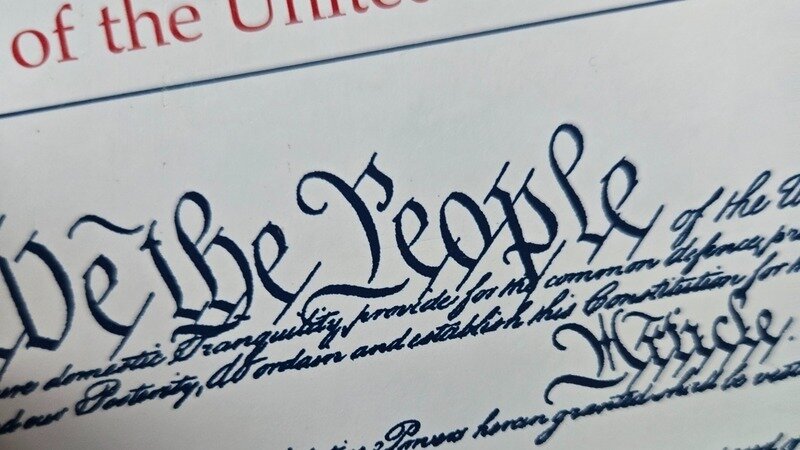 of the United
We the People of the U
domestic Tranquility, provide for the common defence, pr
our Posterity, do ordain and establish this Constitution for
Article.
Powers herein granted shall be vest